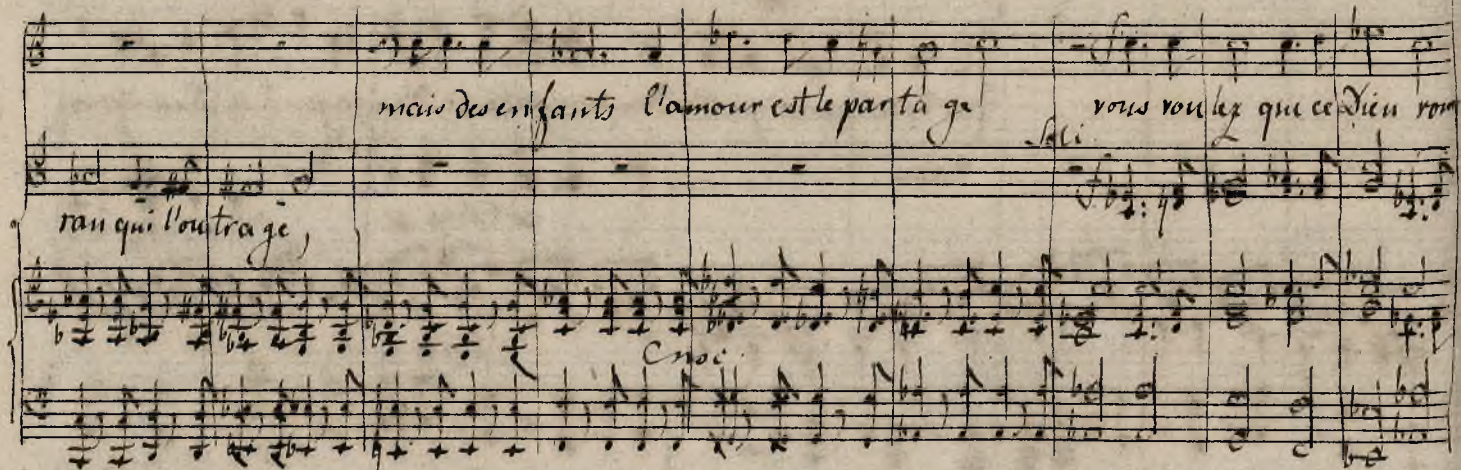 mais des enfants l'amour est le parta ge vous vou lez que ce Dieu rom
ran qui l'outra ge,